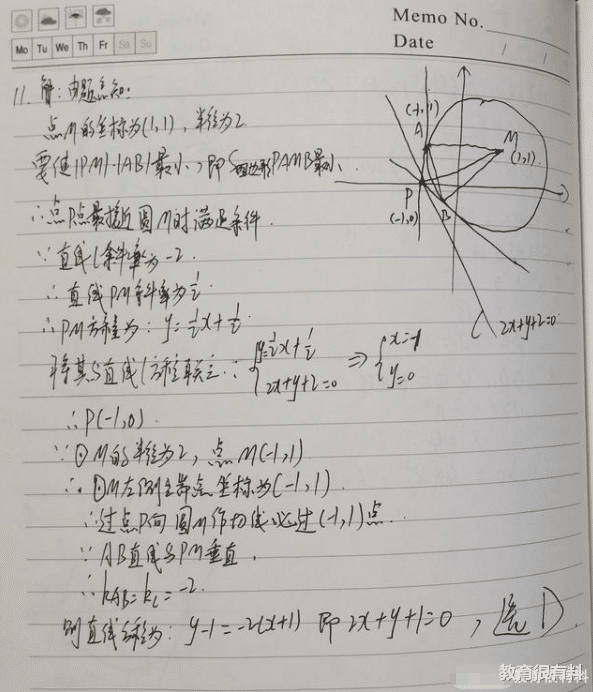 Memo No.
Date
Mo Tu We Th Fr Sa Su
11. 解：由题意知：
点M的坐标为(1,1)，半径为2
要使|PM|·|AB|最小，即S四边形PAMB最小.
∴点P点最接近圆M时满足条件.
∵直线l斜率为-2
∴直线PM斜率为1/2
∴PM方程为：y=1/2x+1/2
将其与直线l方程联立：{y=1/2x+1/2 ⇒ {x=-1
2x+y+2=0 y=0
∴P(-1,0).
∵⊙M的半径为2，点M(-1,1)
∴⊙M左侧主端点坐标为(-1,1)
∴过点P向圆M作切线必过(-1,1)点.
∵AB直线与PM垂直.
∴kAB=kl=-2.
则直线方程为：y-1=-2(x+1) 即2x+y+1=0，选D.
(-1,1)
A
M
(1,1)
P
(-1,0)
B
2x+y+2=0
教育很有料